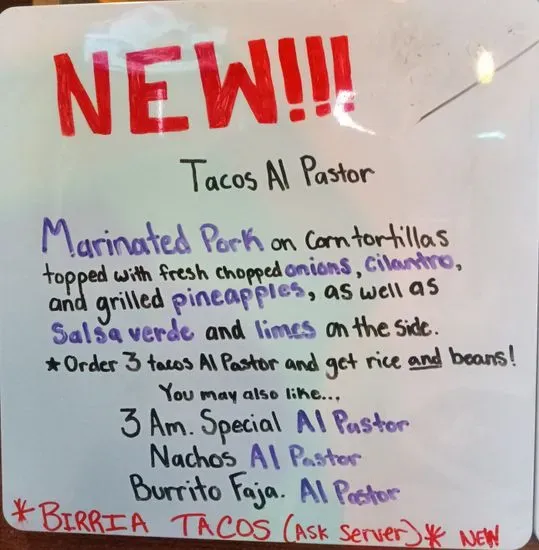 NEW!!!
Tacos Al Pastor
Marinated Pork on Corn tortillas
topped with fresh chopped onions, cilantro,
and grilled pineapples, as well as
Salsa verde and limes on the side.
*Order 3 tacos Al Pastor and get rice and beans!
You may also like...
3 Am. Special Al Pastor
Nachos Al Pastor
Burrito Faja. Al Pastor
*BIRRIA TACOS (ASK Server)* NEW